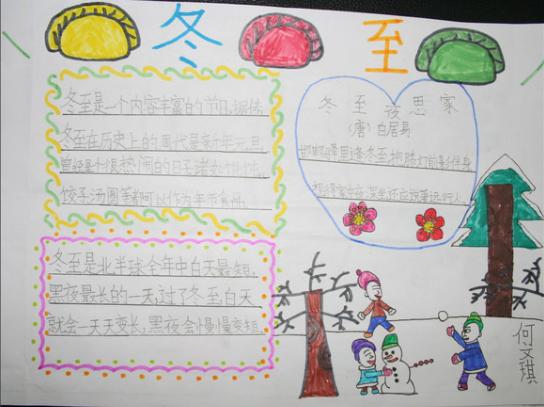 冬至
冬至是一个内容丰富的节日,据传,
冬至在历史上的周代是新年元旦,
曾经是个很热闹的日子,诸如
饺子汤圆等都可以作为年节食用。
冬至夜思家
(唐)白居易
邯郸驿里逢冬至,抱膝灯前影伴身。
想得家中夜深坐,还应说着远行人。
冬至是北半球全年中白天最短、
黑夜最长的一天,过了冬至,白天
就会一天天变长,黑夜会慢慢变短。
何文琪